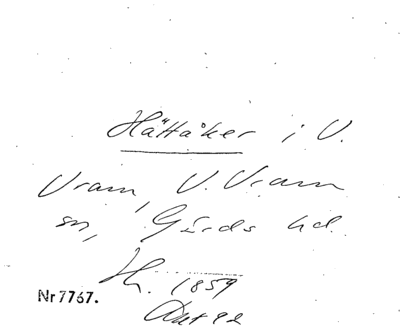 Hättåker i V.
Vram, V. Vram
sn, Gärds hd.
1859
Nr 7767.